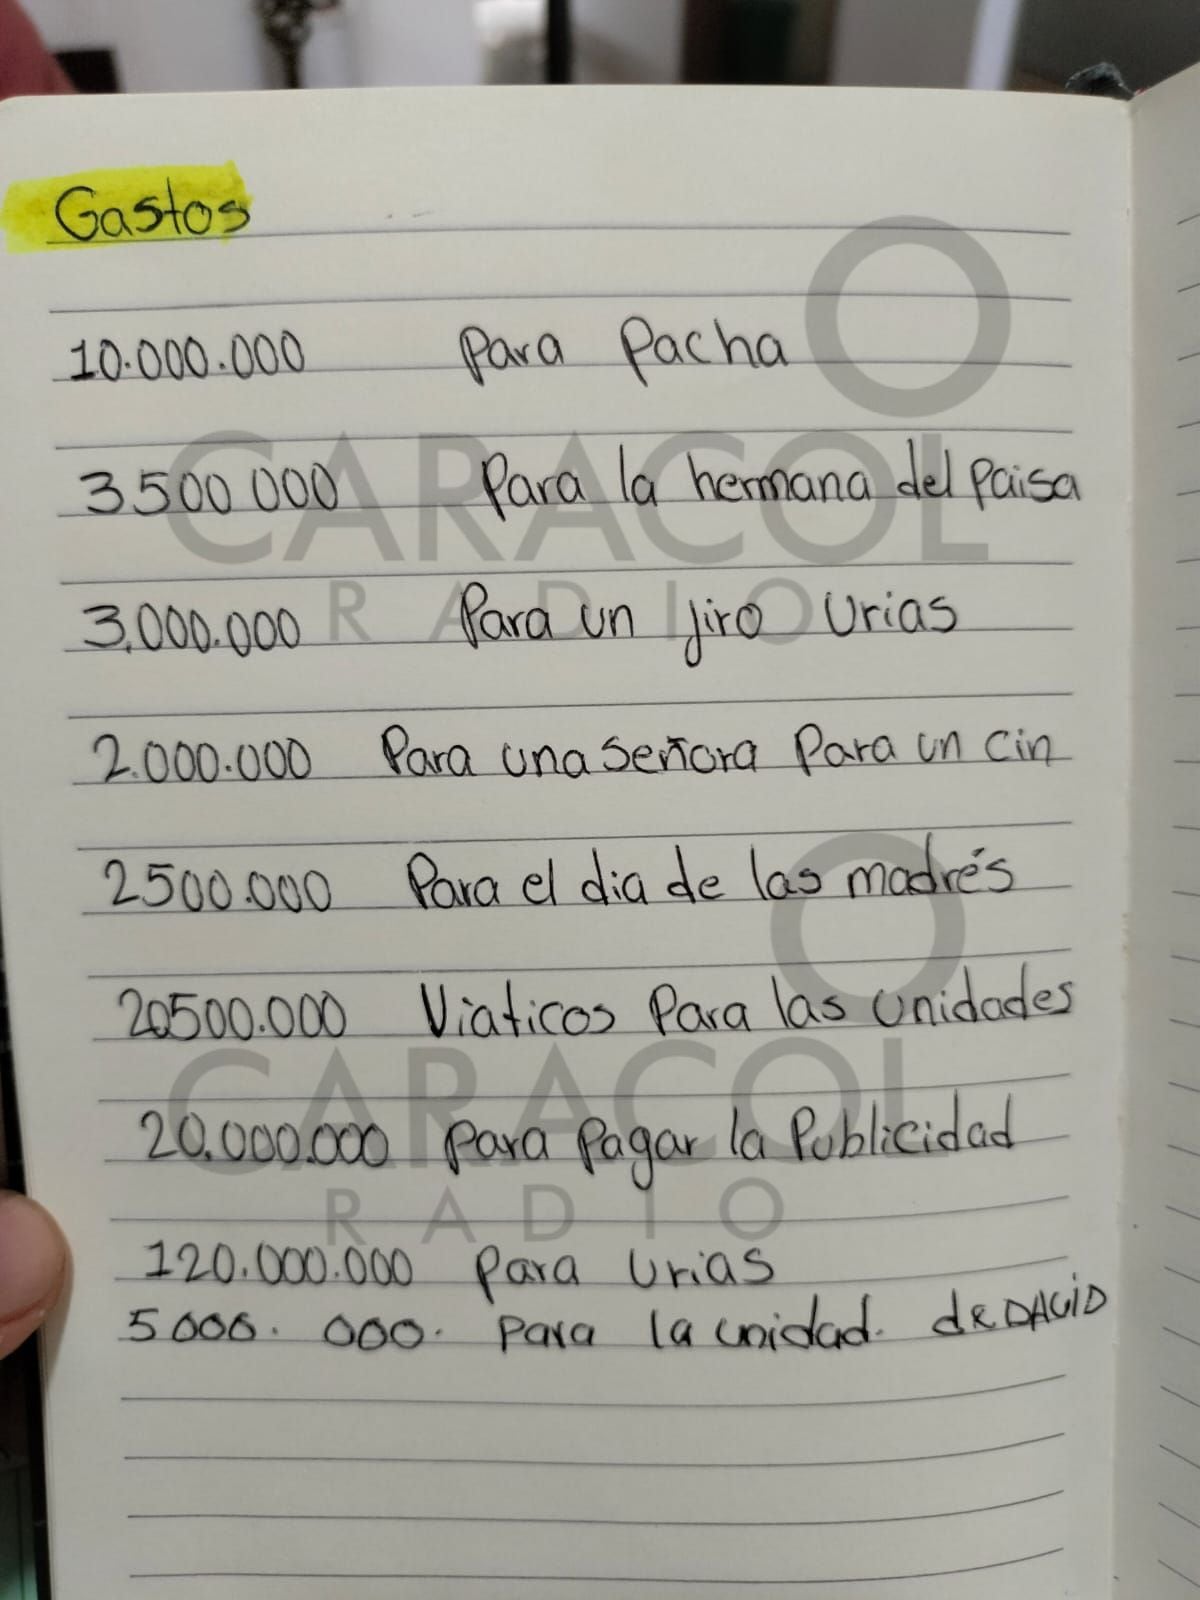 Gastos
10.000.000 Para Pacha
3500 000 Para la hermana del Paisa
3.000.000 Para un jiro Urias
2.000.000 Para una señora Para un cin
2500.000 Para el dia de las madrés
20500.000 Viaticos Para las unidades
20.000.000 Para Pagar la Publicidad
120.000.000 Para Urias
5000.000. Para la unidad. de DAVID
CARACOL
RADIO
CARACOL
RADIO